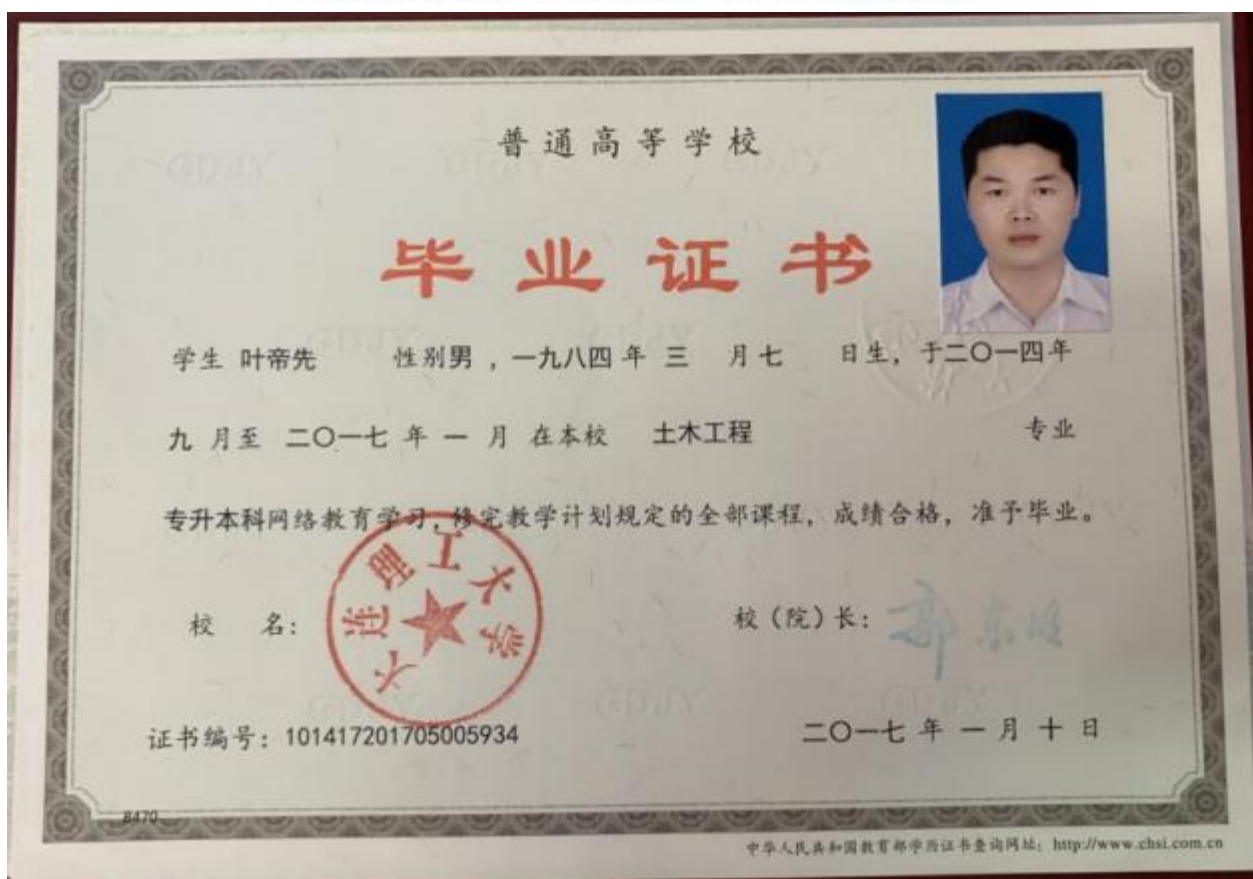 普通高等学校
毕业证书
学生 叶帝先 性别男 ，一九八四 年 三 月七 日生，于二〇一四年
九 月至 二〇一七 年 一 月 在本校 土木工程 专业
专升本科网络教育学习，修完教学计划规定的全部课程，成绩合格，准予毕业。
校 名：
大连理工大学
校（院）长：
证书编号：101417201705005934
二〇一七 年 一 月 十 日
8470
中华人民共和国教育部学历证书查询网址：http://www.chsi.com.cn